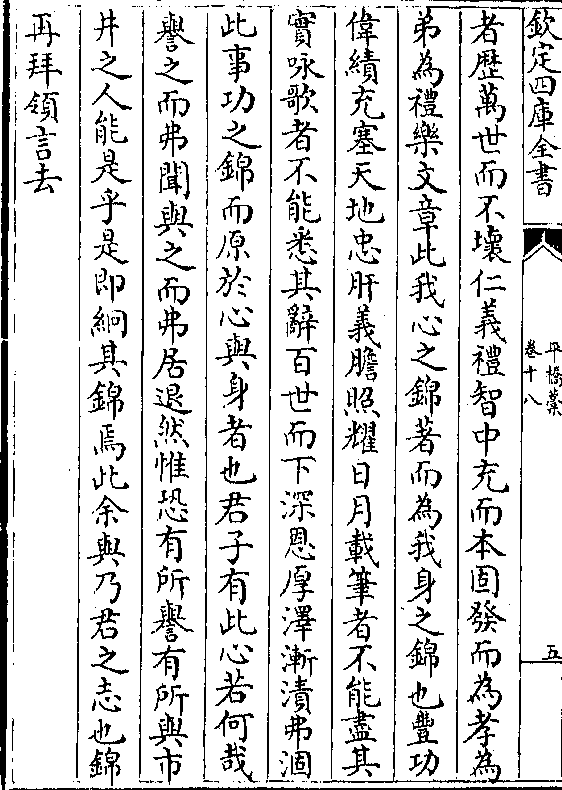 欽定四庫全書
平橋藁
卷十八
五
者歴萬世而不壞仁義禮智中充而本固發而為孝為
弟為禮樂文章此我心之錦著而為我身之錦也豐功
偉績充塞天地忠肝義膽照耀日月載筆者不能盡其
實咏歌者不能悉其辭百世而下深恩厚澤漸漬弗涸
此事功之錦而原於心與身者也君子有此心若何哉
譽之而弗聞與之而弗居退然惟恐有所譽有所與市
井之人能是乎是即絅其錦焉此余與乃君之志也錦
再拜領言去